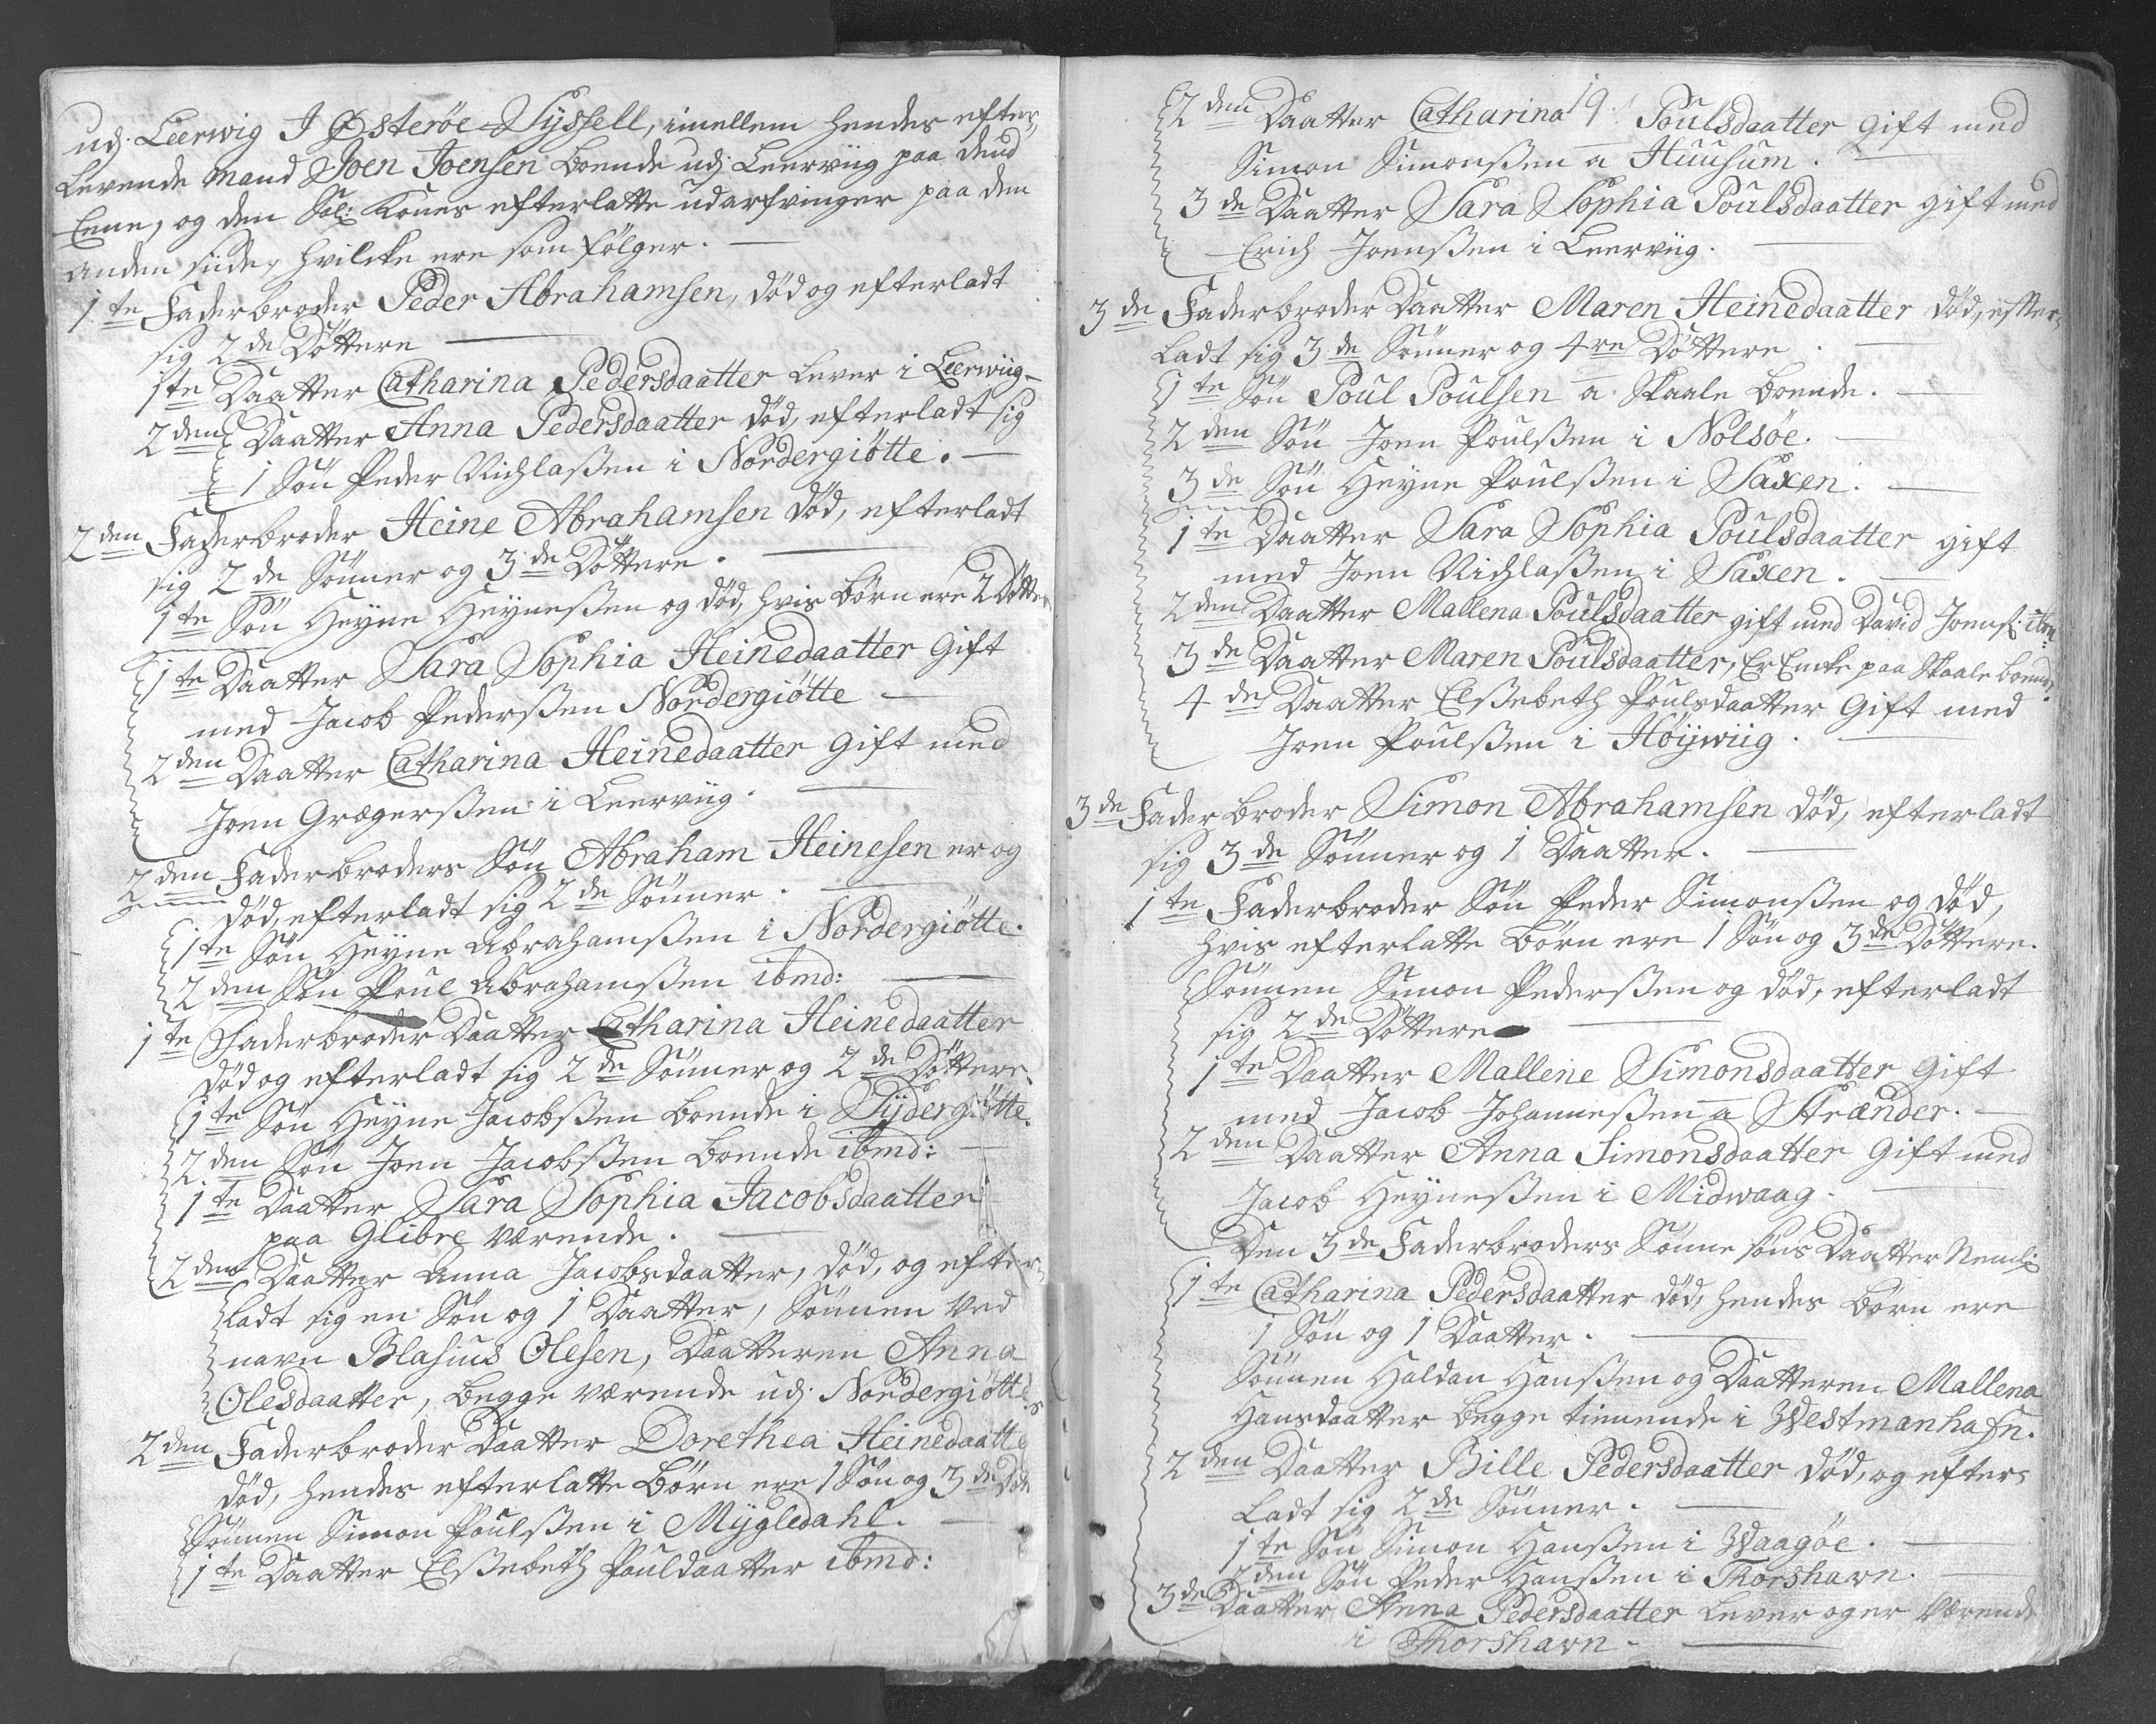 udj Leerwig J Østerøe Sÿssell, imellem hendes efter-
levende Mand Joen Joensen boende udj Leerviig paa dend
Eene, og den Sal: Kones efterlatte udarfvinger paa den
anden siide, hvilcke ere som følger.
1te Faderbroder Peder Abrahamsen, død og efterladt
sig 2de Døttere
1ste Daatter Catharina Pedersdaatter lever i Leerwiig
2den Daatter Anna Pedersdaatter død, efterladt sig
1 Søn Peder Nichlaßen i Nordergiøtte.
2den Faderbroder Heine Abrahamsen død, efterladt
sig 2de Sønner og 3de Døttere.
1te Søn Heyne Heyneßen og død, hvis børn ere 2 Døtter
1te Daatter Sara Sophia Heinedaatter Gift
med Jacob Pederßen Nordergiøtte
2den Daatter Catharina Heinedaatter Gift med
Joen Grægerßen i Leerviig.
2den Faderbroders Søn Abraham Heinesen er og
død, efterladt sig 2de Sønner.
1te Søn Heyne Abrahamßen i Nordergiøtte.
2den Søn Poul Abrahamßen ibmd:
1te Faderbroder Daatter Catharina Heinedaatter
død og efterladt sig 2de Sønner og 2de Døttere.
1te Søn Heyne Jacobßen boende i Sÿdergiøtte.
2den Søn Joen Jacobßen boende ibmd:
1te Daatter Sara Sophia Jacobsdaatter
paa Glibre værende.
2den Daatter Anna Jacobsdaatter, død, og efter-
ladt sig en Søn og 1 Daatter, Sønnen ved
navn Blasius Olesen, Daatteren Anna
Olesdaatter, begge værende udj Nordergiøtte
2den Faderbroder Daatter Dorethea Heinedaatte
død, hendes efterlatte børn ere 1 Søn og 3de Døtt
Sønnen Simon Poulßen i Mÿgledahl.
1te Daatter Elßebeth Pouldaatter ibmd:
19
2den Daatter Catharina Poulsdaatter gift med
Simon Simonßen a Huusum.
3de Daatter Sara Sophia Poulsdaatter gift med
Erich Joenßen i Leerviig.
3de Faderbroder Daatter Maren Heinedaatter død, efter-
ladt sig 3de Sønner og 4re Døttere.
1te Søn Poul Poulsen a Skaale boende.
2den Søn Joen Poulßen i Nolsøe.
3de Søn Heyne Poulßen i Saxen.
1te Daatter Sara Sophia Poulsdaatter gift
med Joen Nichlaßen i Saxen.
2den Daatter Mallena Poulsdaatter gift med David Joenß: ibm
3de Daatter Maren Poulsdaatter, Er Encke paa Skaale boend
4de Daatter Elßebeth Poulsdaatter Gift med
Joen Poulßen i Høÿwiig.
3de Faderbroder Simon Abrahamsen død, efterladt
sig 3de Sønner og 1 Daatter.
1te Faderbroder Søn Peder Simonßen og død,
hvis efterlatte børn ere 1 Søn og 3de Døttere.
Sønnen Simon Pederßen og død, efterladt
sig 2de Døttere
1te Daatter Mallene Simonsdaatter Gift
med Jacob Johanneßen a Strænder.
2den Daatter Anna Simonsdaatter Gift med
Jacob Heyneßen i Midwaag.
Den 3de Faderbroders Sønne søns Daatter Neml:
1te Catharina Pedersdaatter død, hendes børn ere
1 Søn og 1 Daatter.
Sønnen Haldan Hanßen og Daatteren Mallena
Hansdaatter begge tienende i Westmanhafn.
2den Daatter Bille Pedersdaatter død, og efter-
ladt sig 2de Sønner.
1te Søn Simon Hanßen i Waagøe.
2den Søn Peder Hanßen i Thorshavn.
3de Daatter Anna Pedersdaatter lever og er værende
i Thorshavn.